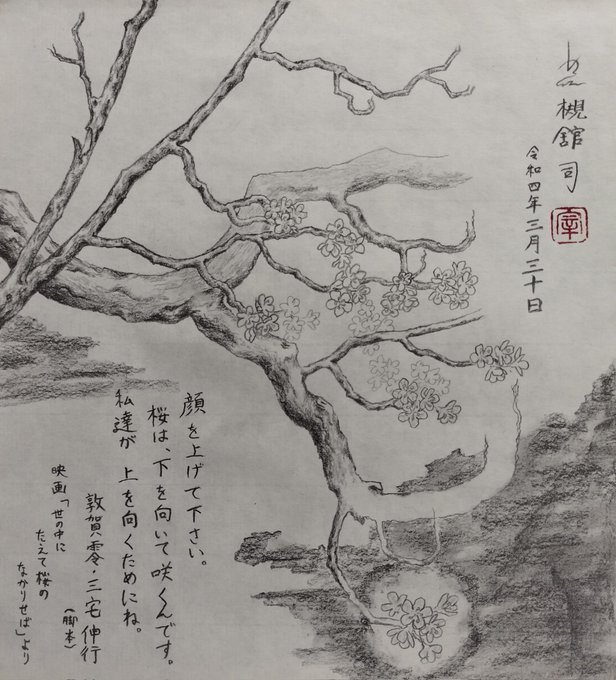 槻舘司
令和四年三月三十日
顔を上げて下さい。
桜は、下を向いて咲くんです。
私達が 上を向くためにね。
敦賀零・三宅伸行
(脚本)
映画「世の中に
たえて桜の
なかりせば」より